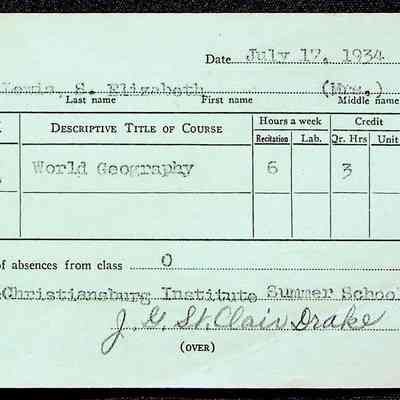 Date July 17, 1934
Lewis, S. Elizabeth (Mrs.)
Last name First name Middle name
Descriptive Title of Course Hours a week Credit
Recitation Lab. Qr. Hrs Unit
World Geography 6 3
of absences from class O
Christiansburg Institute Summer School
J. G. St. Clair Drake
(OVER)